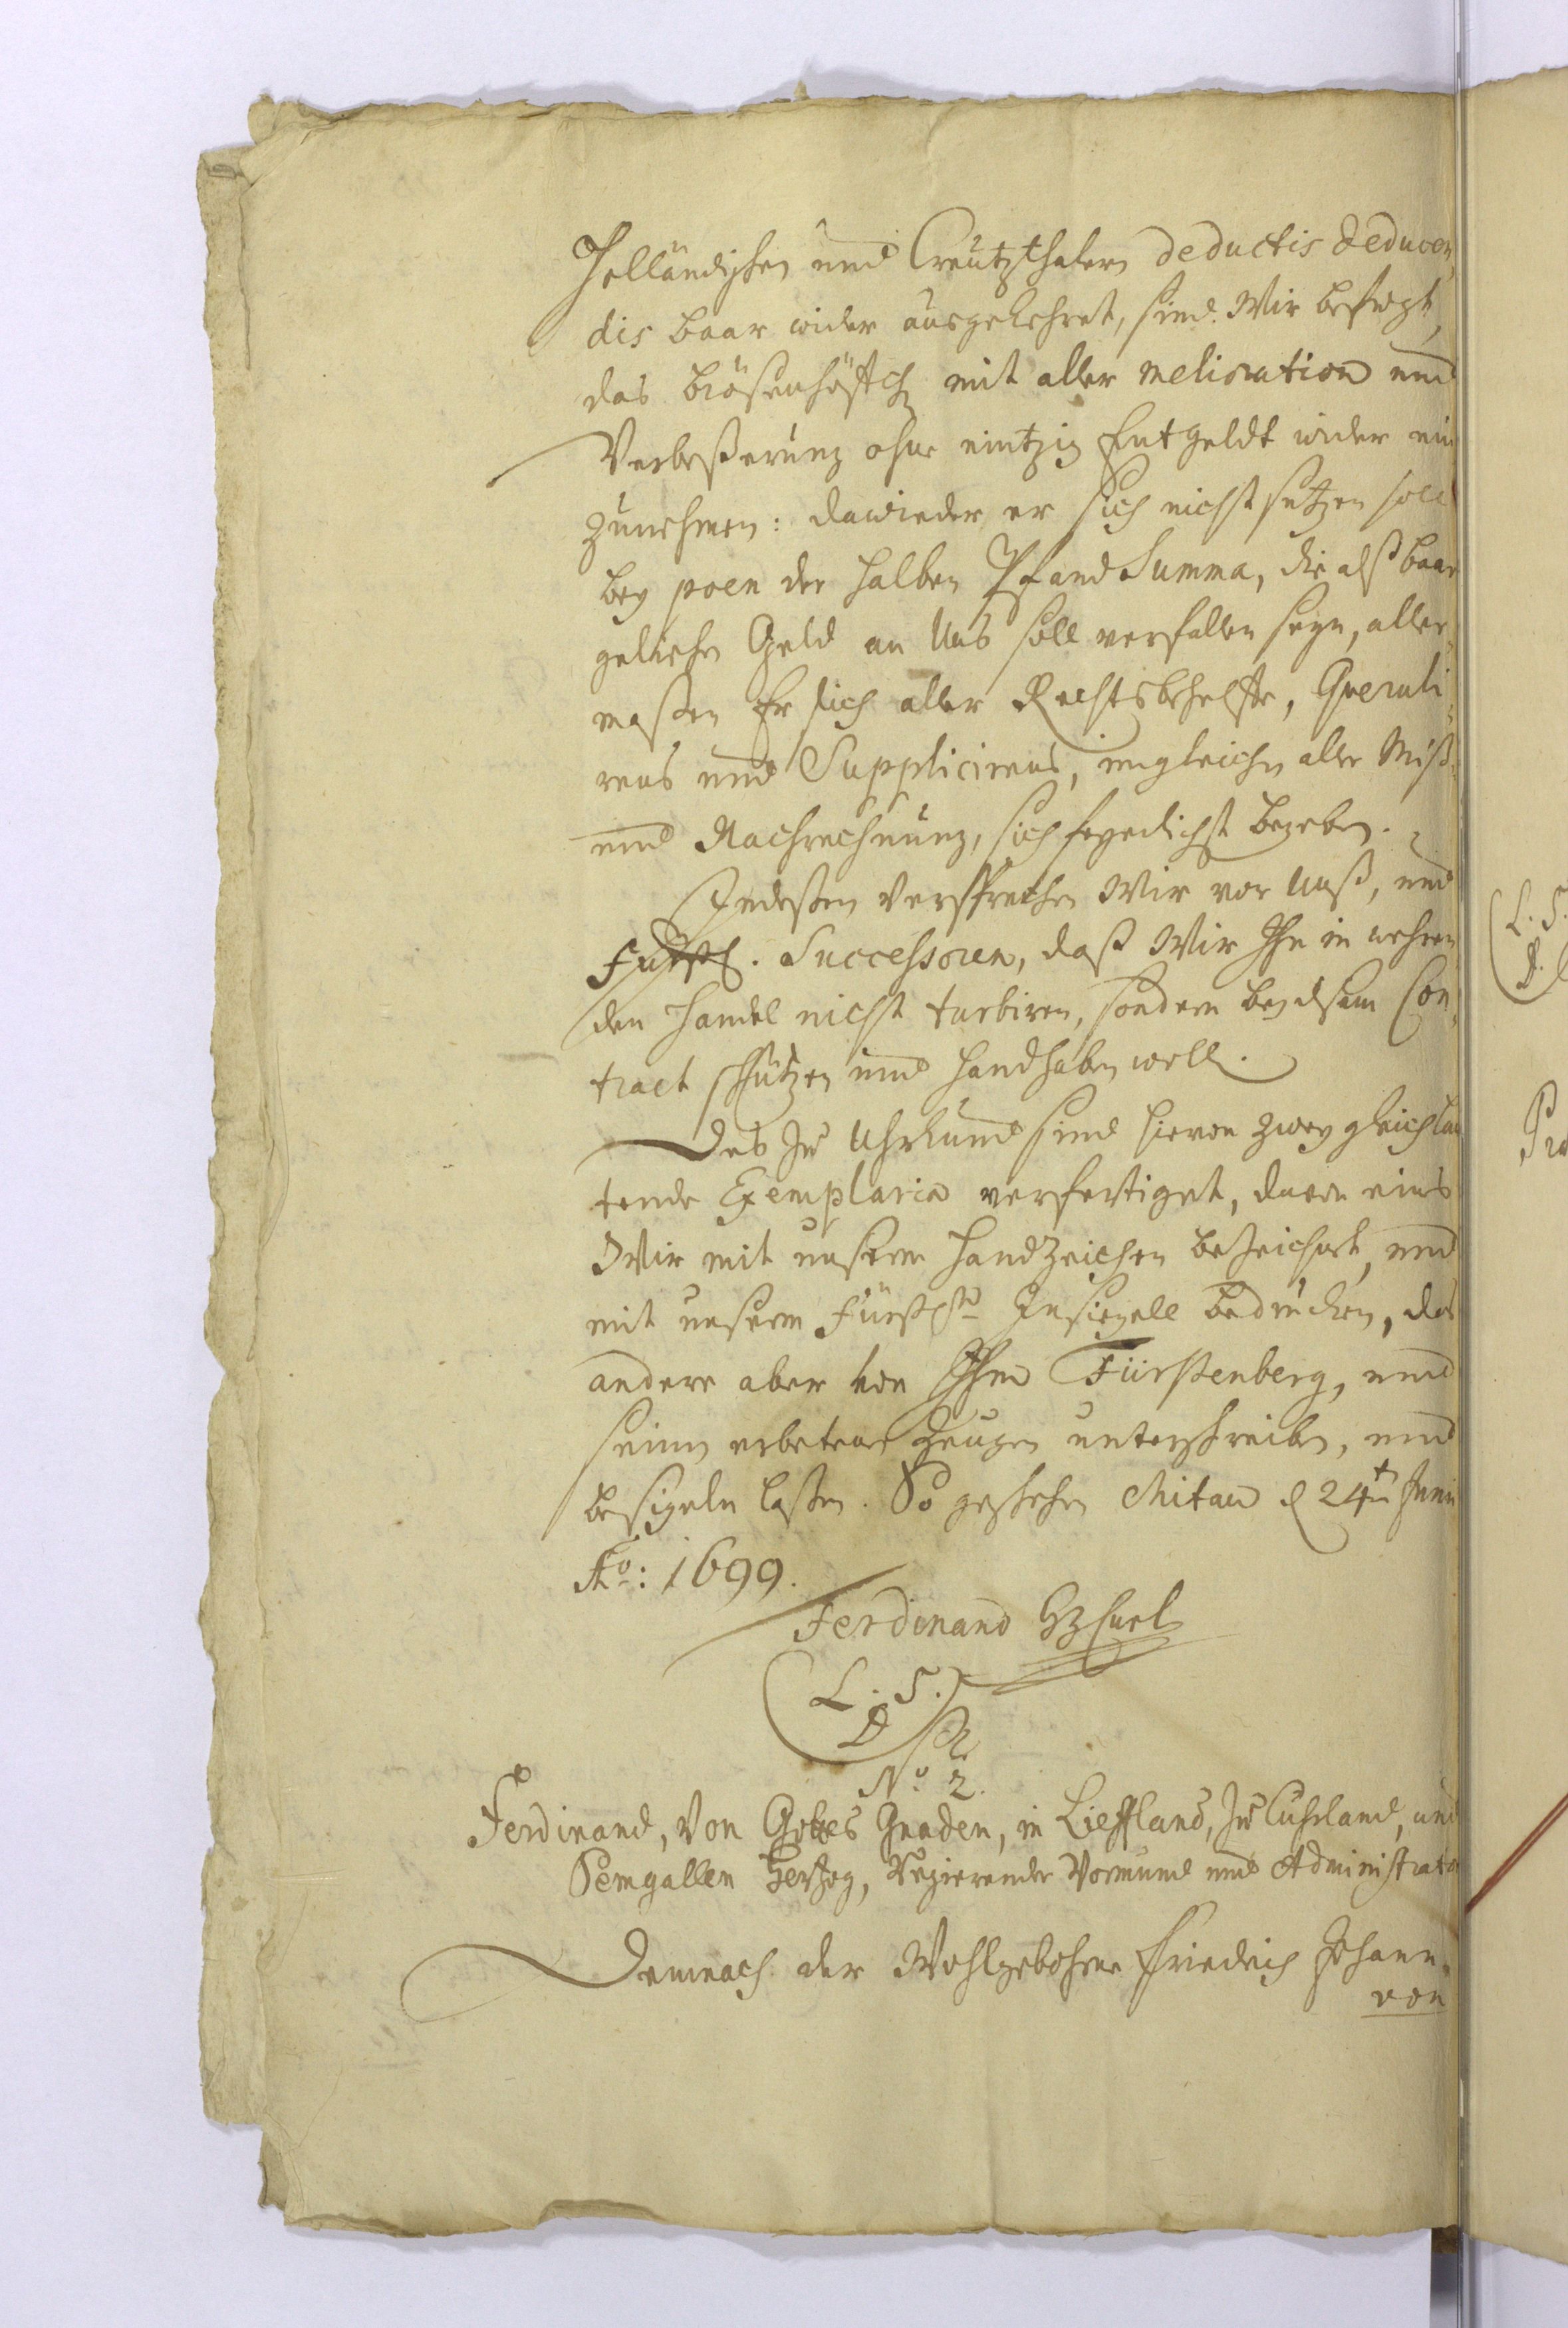 Holländischen und Creützthalern deductis deducen„
dis baar wider ausgekehret, sind Wir befugt,
das Brösenhöffch mit aller melioration und
Verbeßerung ohne eintzig Entgeldt wider ein
zunehmen: dawieder er sich nicht setzen soll
bey poen der halben Pfand Summa, die alß baar
geliehen Geld an Uns soll verfallen seyn, aller„
maßen Er sich aller Rechtsbehelffe, Queruli„
rens und Supplicirens, imgleichen aller Miß„
und Nachrechnung, sich feyerlichst begeben.
Indeßen versprechen Wir vor Unß, und
Fürstl. Successoren, daß Wir Ihn in wehren
den Handel nicht turbiren, sondern bey dsem Con„
tract schützen und handhaben woll.
Des zu Uhrkund sind hievon zwey gleichlau
tende Exemplaria verfertiget, davon eins
Wir mit unserm Handzeichen bezeichnet, und
mit unserm Fürstl. Insiegell bedrucken, das
andere aber von Ihm Fürstenberg, und
seinen erbetene Zeugen unterschreiben, und
besigeln laßen. So geschehen Mitau d 24t Junii
Ao: 1699.
Ferdinand HzCurl
(L. S.)
No 2.
Ferdinand, Von Gottes Gnaden, in Lieffland, zu Cuhrland, und
Semgallen Hertzog, Regierender Vormund und Administrator
Demnach der Wohlgebohrne Friedrich Johann
von
L. S.